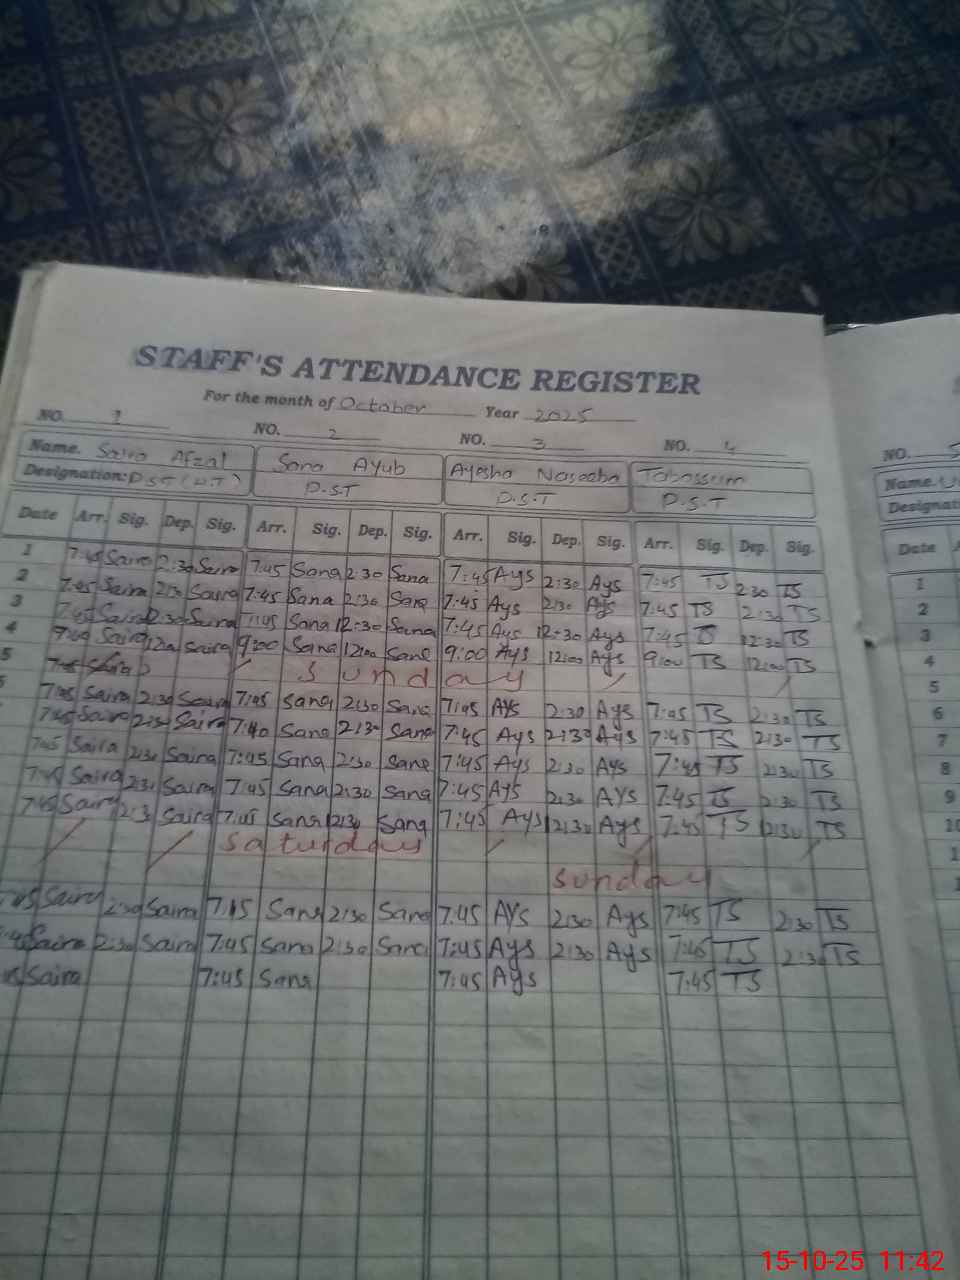 STAFF'S ATTENDANCE REGISTER
For the month of October Year 2025
NO. 1 NO. 2 NO. 3 NO. 4
Name. Saira Afzal Sana Ayub Ayesha Tabassum
Designation: D.S.T D.S.T D.S.T
Date Arr. Sig. Dep. Sig. Arr. Sig. Dep. Sig. Arr. Sig. Dep. Sig. Arr. Sig. Dep. Sig.
1 7:45 Saira 2:30 Saira 7:45 Sana 2:30 Sana 7:45 Ays 2:30 Ays 7:45 TS 2:30 TS
2 7:45 Saira 2:30 Saira 7:45 Sana 2:30 Sana 7:45 Ays 2:30 Ays 7:45 TS 2:30 TS
3 7:45 Saira 12:30 Saira 7:45 Sana 12:30 Sana 7:45 Ays 12:30 Ays 7:45 TS 12:30 TS
4 Saira Saira 9:00 Sana 12:00 Sana 9:00 Ays 12:00 Ays 9:00 TS 12:00 TS
5 Saira Sunday
7:45 Saira 2:30 Saira 7:45 Sana 2:30 Sana 7:45 Ays 2:30 Ays 7:45 TS 2:30 TS
7:45 Saira 2:30 Saira 7:40 Sana 2:30 Sana 7:45 Ays 2:30 Ays 7:45 TS 2:30 TS
7:45 Saira 2:30 Saira 7:45 Sana 2:30 Sana 7:45 Ays 2:30 Ays 7:45 TS 2:30 TS
7:45 Saira 2:30 Saira 7:45 Sana 2:30 Sana 7:45 Ays 2:30 Ays 7:45 TS 2:30 TS
7:45 Saira 2:3 Saira 7:45 Sana 2:30 Sana 7:45 Ays 2:30 Ays 7:45 TS 2:30 TS
Saturday
Sunday
Saira 2:30 Saira 7:45 Sana 2:30 Sana 7:45 Ays 2:30 Ays 7:45 TS 2:30 TS
Saira 2:30 Saira 7:45 Sana 2:30 Sana 7:45 Ays 2:30 Ays 7:45 TS 2:30 TS
Saira 7:45 Sana 7:45 Ays 7:45 TS
NO. 5
Name.
Date
1
2
3
4
5
6
7
8
9
10
15-10-25 11:42